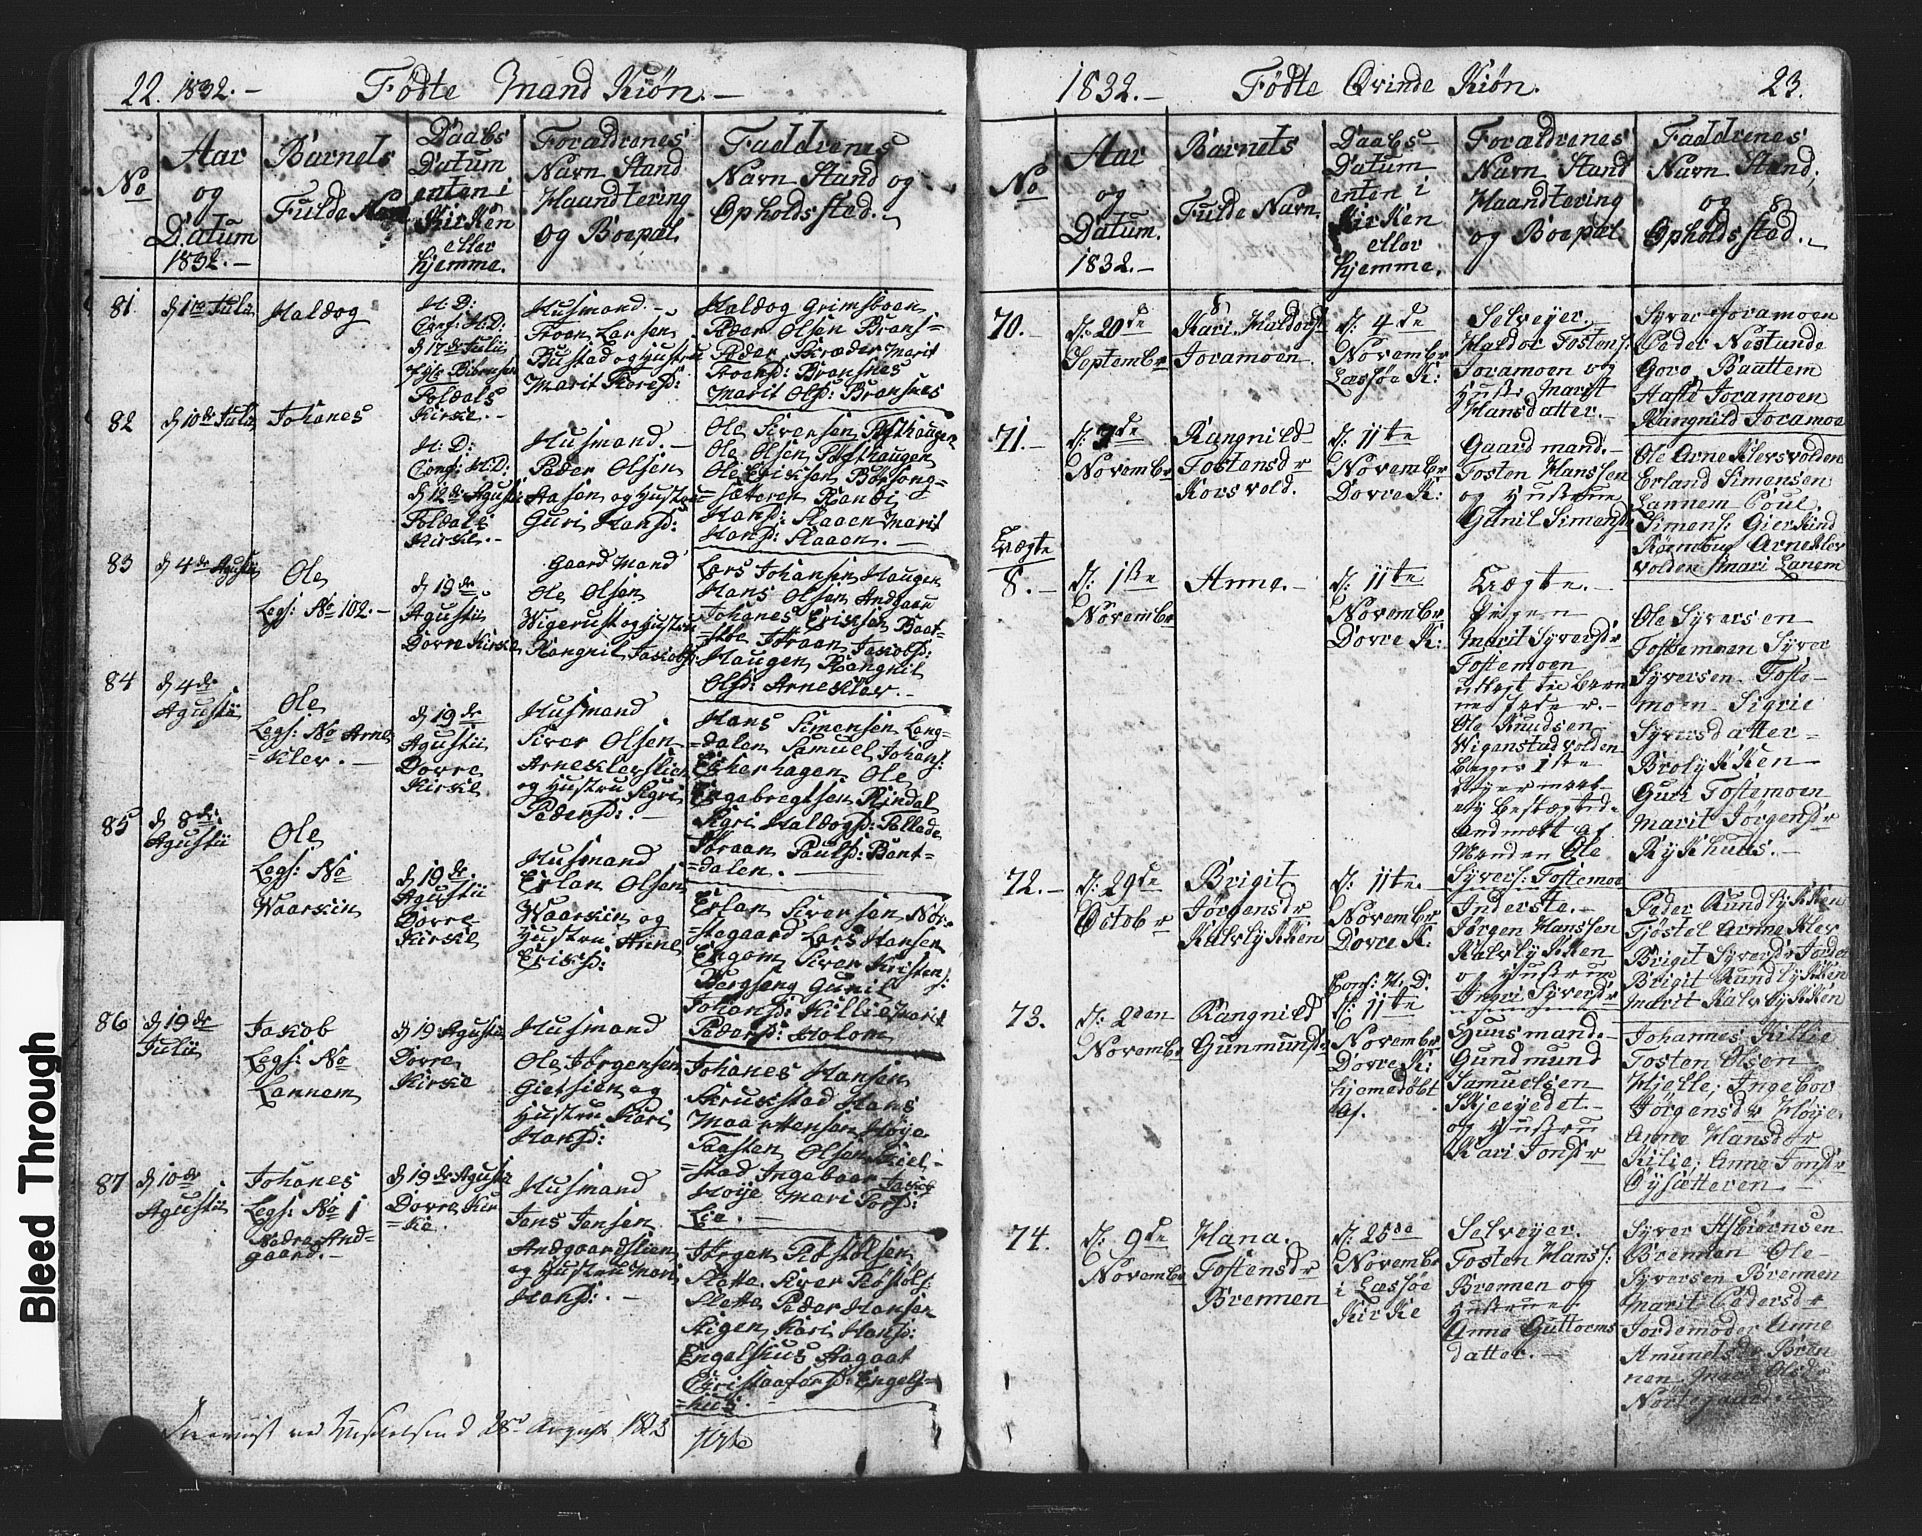 22. 1832. — Fødte Mand Kiøn. —
No
Aar
og
Datum
1832. —
Barnets
Fulde Navn
Daabs
Datum
enten i
Kirken
eller
hjemme.
Forældrenes
Navn Stand
Haandtering
og Boepæl.
Faddrenes
Navn Stand og
Opholds sted.
81
d 1te Julii
Haldog
H: D:
Conf: H: D:
d 17de Julii
Foldals
Kirke. —
Husmand. —
Bustad og Hustru
Marit
Haldog Grimsboen
Peder Olsen Brans=
Peder Kræder Marit
Bransnes
Marit Olsd: Bransnes
82
d 10de Julii
Johanes
H: D:
Conf: H: D:
d 12de Agustii
Foldals
Kirke. —
Husmand. —
Peder Olsen
Aasen og Hustru
Guri Hansd:
Ole Siversen
Ole Olsen
Ole Eriksen Børsong=
=sæteren Randi
Hansd: Slaaen Marit
Hansd: Slaaen. —
83
d 4de Agustii
Ole
Legs: No 102. —
d 19de
Agustii
Dovre Kirke
Gaard Mand
Ole Olsen
Wigerust og Hustru
Rangnil Jakobsd:
Lars Johansen Haugen
Hans Olsen Andgaard
Johanes Eriksen Baat=
Joraan Jakobsd:
Haugen Rangnil
Olsd: Arneklev. —
84
d 4de
Agustii
Ole
Legs: No Arne
=klev. —
d 19de
Agustii
Dovre
Kirke
Husmand
Siver Olsen
Arneklevslien
og Hustru Sigri
Pedersd: —
Hans Simensen Leng=
=dalen Samuel Johans:
Eskerhagen Ole
Engebregtsen Rindal
Sigri Haldogsd: Pollade
Joraan Paulsd: Bent=
=dalen. —
85
d 8de
Agustii
Ole
Legs: No
Waarkiin
d 19de
Agustii
Dovre
Kirke
Husmand
Erlan Olsen
Waarkiin og
Hustru Anne
Eriksd:
Erlan Siversen Nor=
=stegaard Lars Hansen
Engom Siver Kristens:
Bergseng Gunil
Johansd: Killi Marit
Pedersd: Holom
86
d 19de
Julii
Jakob
Legs: No
Lannem
d 19 Agustii
Dovre
Kirke
Husmand
Ole Jørgensen
og
Hustru Kari
Hansd:
Johanes Hansen
Skrukstad Hans
Maartensen Høye
Taasten Olsen Kiel=
=stad Ingeboer Jakobs
Høye Mari Torsd:
Lie. —
87
d 10de
Agustii
Johanes
Legs: No 1
Nedre And=
gaard. —
d 19de Agustii
Dovre Kir
=ke.
Husmand
Jens Jensen
Andgaardslien
og Hustru Mari
Hansd: —
Jørgen Rostolsen
Slette Siver Røstøls:
Slette Peder Hansen
Stigen Kari Hansd:
Engelshus Aagaat
Christoafersd: Engels=
=hus. —
28de August 1833
1832. — Fødte Qvinde Kiøn. 23.
No
Aar
og
Datum.
1832. —
Barnets
Fulde Navn
Daabs—
Datum
enten i
Kirken
eller
hjemme.
Forældrenes
Navn Stand
Haandtering
og Boepæl
Faddrenes
Navn Stand,
og
Opholds sted. —
70.
D: 20de
September
Kari Haldorsd
Joramoen
D: 4de
November
Læsjøe K:
Selveyer. —
Haldor Tostens:
Joramoen og
Hust: Marit
Hansdatter. —
Syver Joramoen
Peder Nestunde
Goro Baattem
Joramoen
Rangnild Joramoe
71. —
D: 7de
November
Rangnild
Tostensdr
Korsvold.
D: 11te
November
Dovre K:
Gaardmand. —
Tosten Hanssen
og Hustrue
Gunil Simensdr
Ole Arne Klevsvolden
Erland Simensen
Lannem Poul
Simens:
Arneklev
volden Mari Lanem
Uægte
8. —
D: 1ste
November
Anne. —
D: 11te
November
Dovre K:
Uægte. —
Pigen
Marit Syversdr
Tostemoen
utlagt til Barne
ns Fader. —
Ole Knudsen
Wigenstad volden
Begges 1ste
Leyermaal
ey bestægtede
Andmælt af
Manden Ole
Syvers: Tostemoe
Ole Syversen
Tostemoen Syver
Syversen Toste—
moen Sigrie
Syversdatter—
Brolykken
Guri Tostemoen
Marit Jørgensdr
Rykhuus. —
72. —
D: 29de
October
Brigit
Jørgensdr
Kalvlykken
D: 11te
November
Dovre K:
Inderste. —
Jørgen Hanssen
Kalvlykken
og Hustrue
Ingri Syversdr
Peder Rundlykken
Tjostel Arneklev
Brigit Syversdr
Brigit Rundlykken
Marit Kalvlykken
73.
D: 2den
November
Rangnild
Gunmunsdr
Conf: H. D.
D: 11te
November
Dovre K:
hjemedøbt
af.
Huusmand. —
Gundmund
Samuelsen
Skjeeyedet. —
og Hustru
Kari Jonsdr
Johannes Killie
Tosten Olsen
Hjelle, Ingebor
Jørgensdr Høye
Anne Hansdtr
Kilie, Anne Jonsdr
Øysætteren —
74.
D: 9de
November
Hana.
Tostensdr
Brennen
D: 25de
November
i Læsjøe
Kirke
Selveyer.
Tosten Hanss:
Brennen og
Hustrue
Anne Guttorms
datter. —
Syver Asbiørnsen
Brennen Ole—
Syversen Brennen
Marit Pedersdr
Jordemoder Anne
Amundsdr Bren
nen Mari Olsdr
Nørdegaard. —